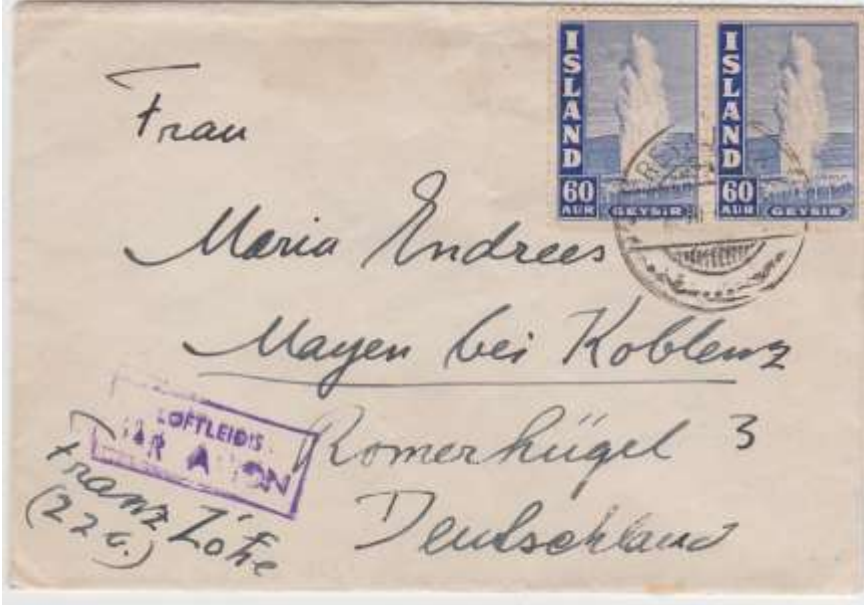 ISLAND
60
AUR GEYSIR
ISLAND
60
AUR GEYSIR
Frau
Maria Endrees
Mayen bei Koblenz
Römerhügel 3
Deutschland
LOFTLEIDIS
PAR AVION
Franz
(22c.)